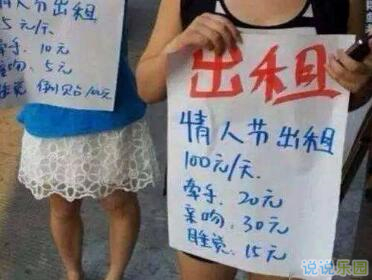 情人节出租
5元/天
牵手:10元
亲吻:5元
睡觉 倒贴100元
出租
情人节出租
100元/天
牵手:20元
亲吻:30元
睡觉:15元
说说乐园